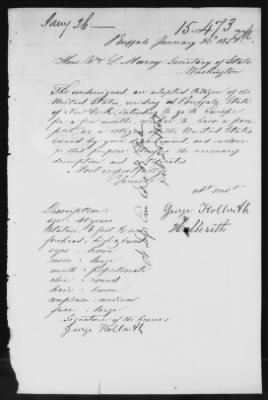 Jany 26 —
15.473
Buffalo January 20th 185
Hon: Wm L. Marcy Secretary of State
Washington
The undersigned an adopted Citizen of the
United States, residing at Buffalo State
of New York, intends to go to Europe
for a few months, wishes to have a pass
port, as a citizen of the United States
issued by your Department, and encloses
for that purpose the necessary
description and certificates
Most respectfully
Yours
obt servt
George Hollwith
Description:
age: 40 years
stature: 6 foot
forehead: high & broad
eyes: brown
nose: large
mouth: proportionate
chin: round
hair: brown
complexion: medium
face: large
Signature of the bearer
George Hollwith